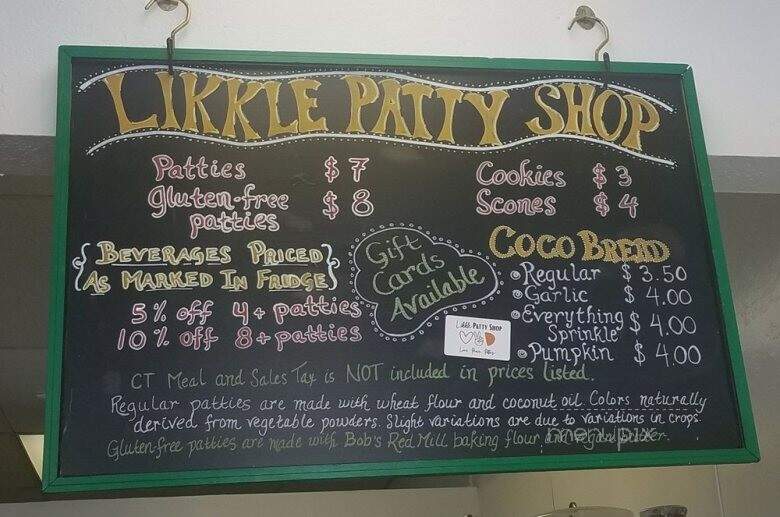 LIKKLE PATTY SHOP
Patties $7
Gluten-free patties $8
Cookies $3
Scones $4
BEVERAGES PRICED
AS MARKED IN FRIDGE
5% off 4+ patties
10% off 8+ patties
Gift
Cards
Available
LIKKLE PATTY SHOP
COCO BREAD
Regular $3.50
Garlic $4.00
Everything Sprinkle $4.00
Pumpkin $4.00
CT Meal and Sales Tax is NOT included in prices listed.
Regular patties are made with wheat flour and coconut oil. Colors naturally
derived from vegetable powders. Slight variations are due to variations in crops.
Gluten-free patties are made with Bob's Red Mill baking flour and vegan butter.
menupix